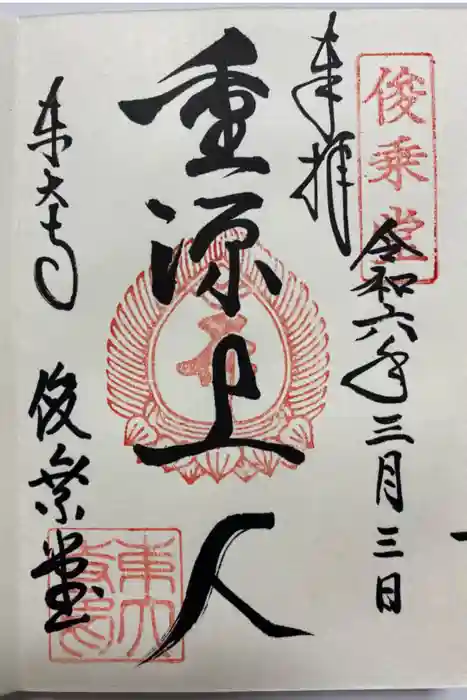 俊乗堂
奉拝
令和六年三月三日
重源上人
東大寺
俊乗堂